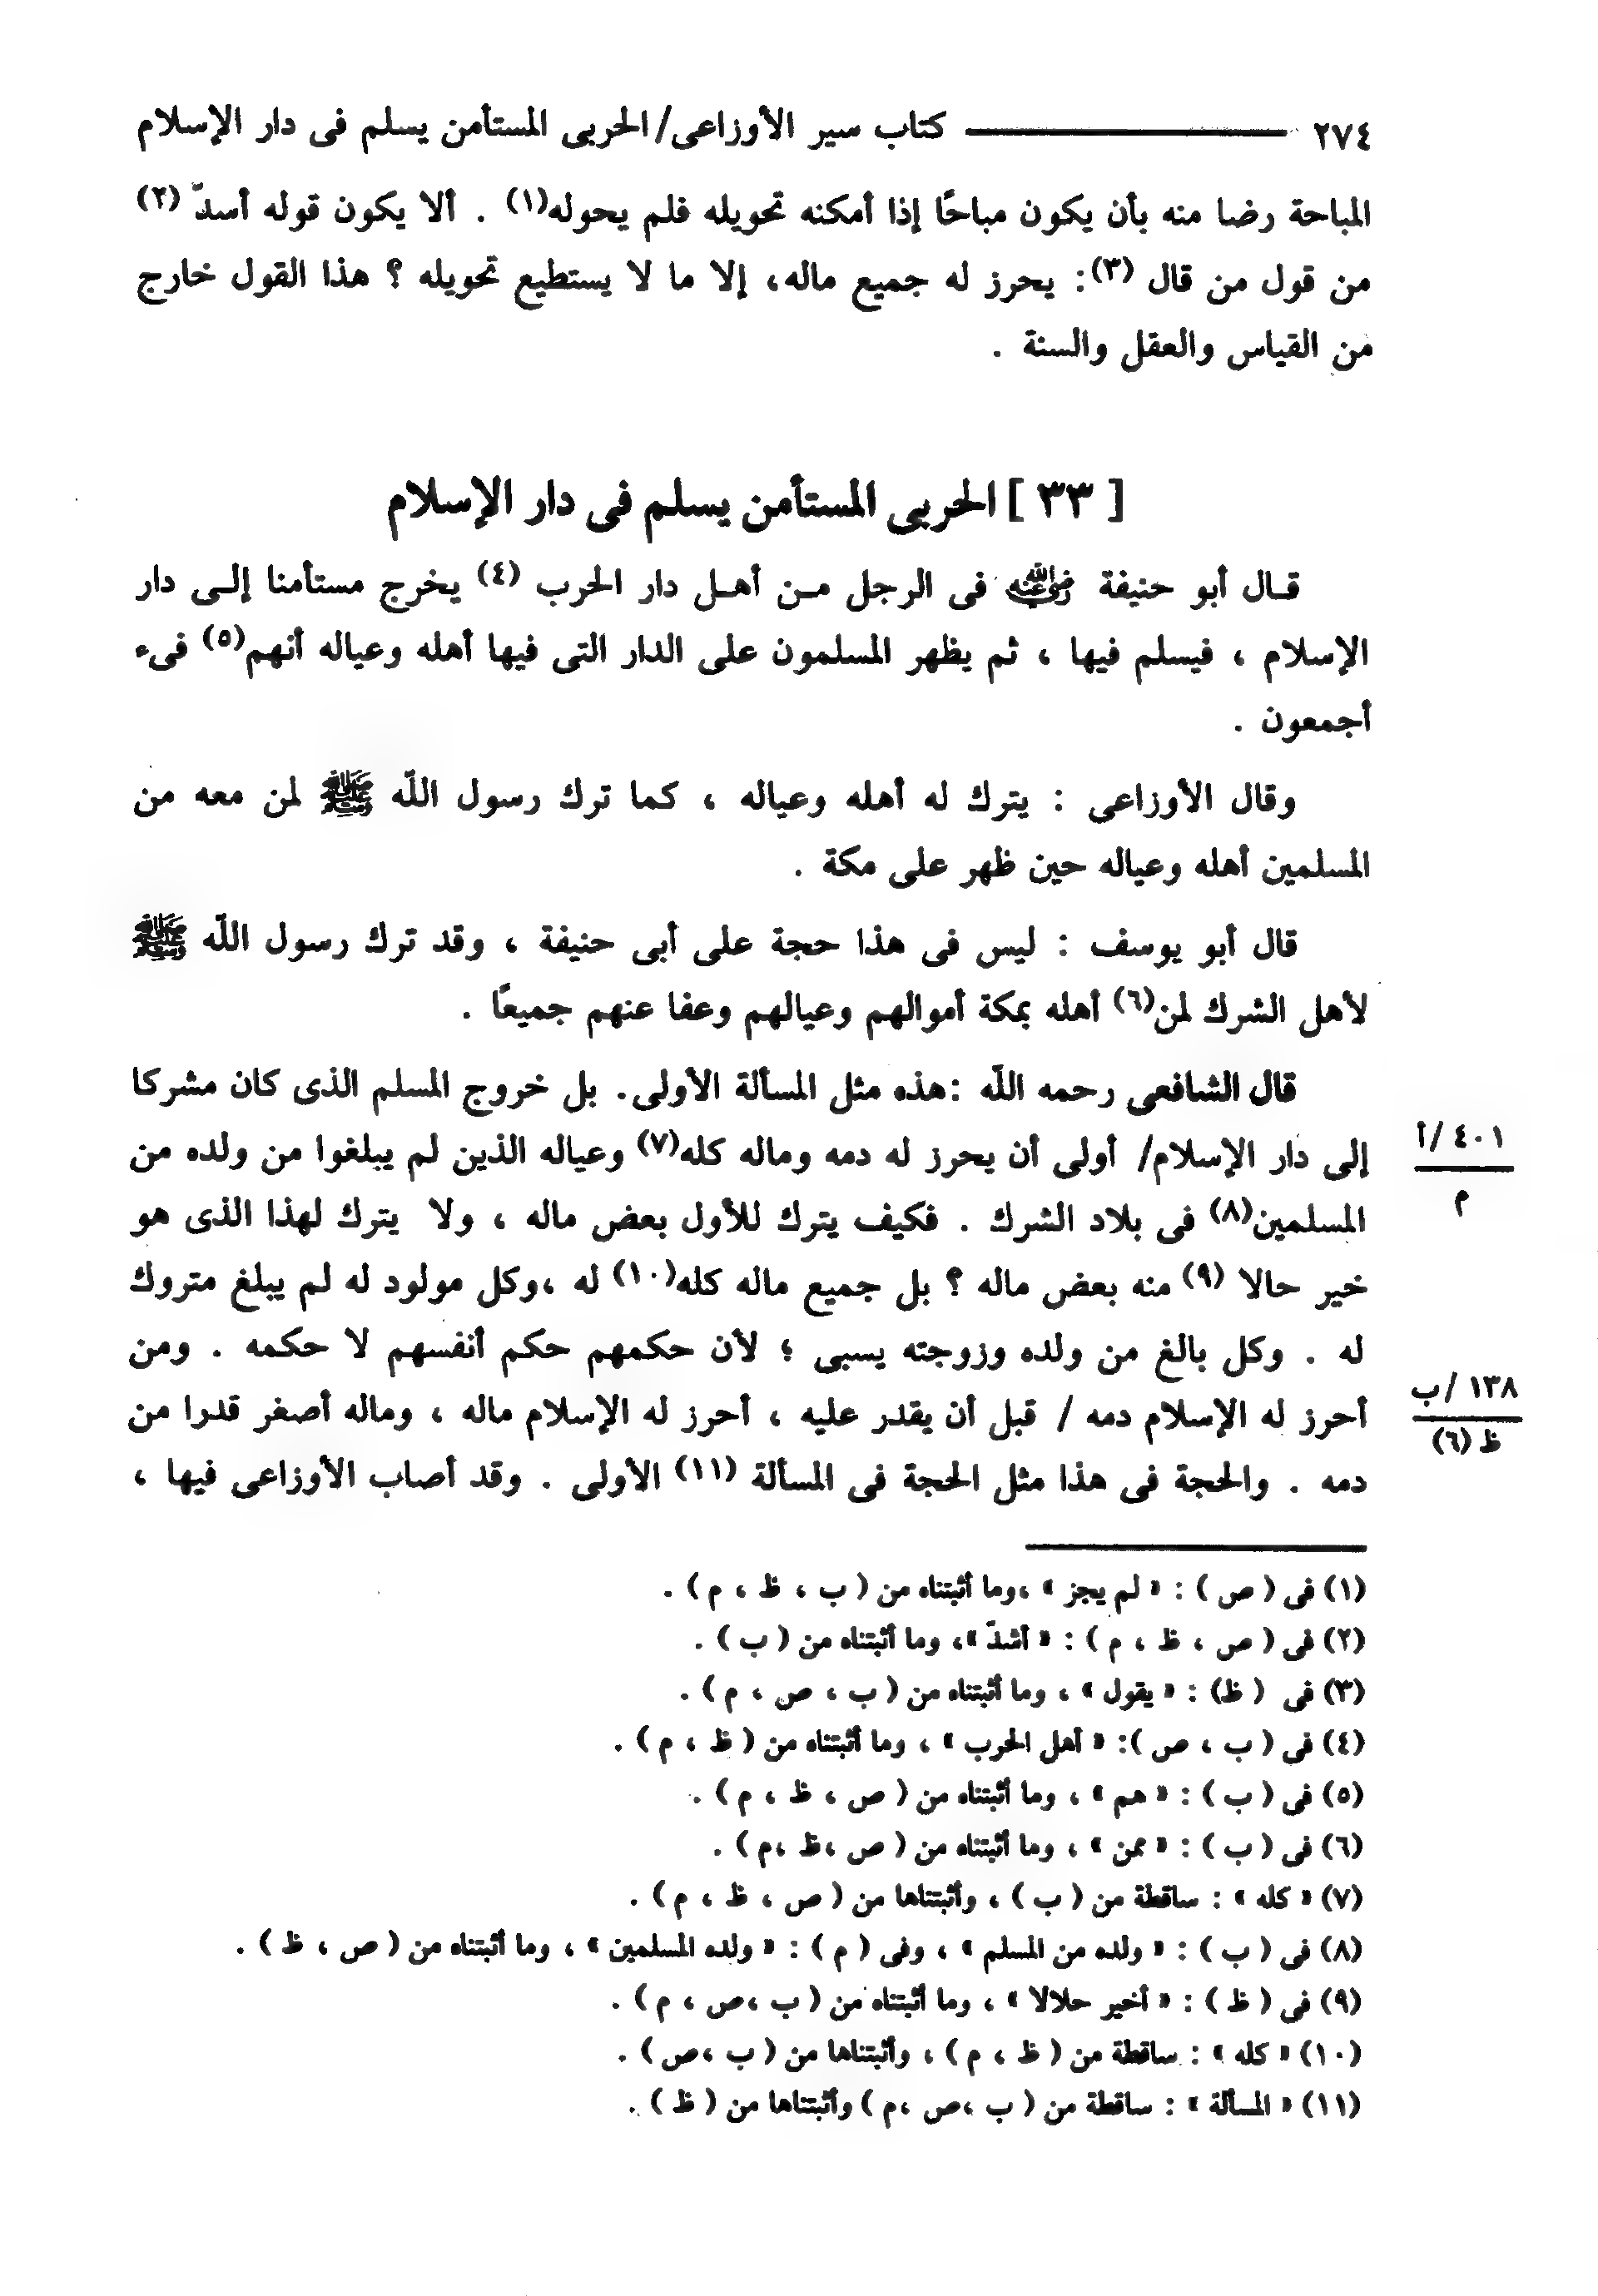 ٢٧٤ ــــــــــ كتاب سير الأوزاعى/الحربى المستأمن يسلم فى دار الإسلام
المباحة رضا منه بأن يكون مباحًا إذا أمكنه تحويله فلم يحوله(١) . ألا يكون قوله أسدّ (٢)
من قول من قال (٣): يحرز له جميع ماله، إلا ما لا يستطيع تحويله ؟ هذا القول خارج
من القياس والعقل والسنة .
[ ٣٣ ] الحربى المستأمن يسلم فى دار الإسلام
قـال أبو حنيفة رضي الله عنه فى الرجل مـن أهـل دار الحرب (٤) يخرج مستأمنا إلـى دار
الإسلام ، فيسلم فيها ، ثم يظهر المسلمون على الدار التى فيها أهله وعياله أنهم(٥) فىء
أجمعون .
وقال الأوزاعى : يترك له أهله وعياله ، كما ترك رسول اللّه ﷺ لمن معه من
المسلمين أهله وعياله حين ظهر على مكة .
قال أبو يوسف : ليس فى هذا حجة على أبى حنيفة ، وقد ترك رسول اللّه ﷺ
لأهل الشرك لمن(٦) أهله بمكة أموالهم وعيالهم وعفا عنهم جميعًا .
قال الشافعى رحمه اللّه :هذه مثل المسألة الأولى. بل خروج المسلم الذى كان مشركا
إلى دار الإسلام/ أولى أن يحرز له دمه وماله كله(٧) وعياله الذين لم يبلغوا من ولده من
٤٠١ /أ
م
المسلمين(٨) فى بلاد الشرك . فكيف يترك للأول بعض ماله ، ولا يترك لهذا الذى هو
خير حالا (٩) منه بعض ماله ؟ بل جميع ماله كله(١٠) له ،وكل مولود له لم يبلغ متروك
له . وكل بالغ من ولده وزوجته يسبى ؛ لأن حكمهم حكم أنفسهم لا حكمه . ومن
أحرز له الإسلام دمه / قبل أن يقدر عليه ، أحرز له الإسلام ماله ، وماله أصغر قدرا من
١٣٨ /ب
ظ (٦)
دمه . والحجة فى هذا مثل الحجة فى المسألة (١١) الأولى . وقد أصاب الأوزاعى فيها ،
(١) فى ( ص ) : « لم يجز » ،وما أثبتناه من ( ب ، ظ ، م ) .
(٢) فى ( ص ، ظ ، م ) : « أشدّ »، وما أثبتناه من ( ب ) .
(٣) فى ( ظ) : « يقول » ، وما أثبتناه من ( ب ، ص ، م ) .
(٤) فى ( ب ، ص ): « أهل الحرب » ، وما أثبتناه من ( ظ ، م ) .
(٥) فى ( ب ) : « هم » ، وما أثبتناه من ( ص ، ظ ، م ) .
(٦) فى ( ب ) : « ممن » ، وما أثبتناه من ( ص ،ظ ،م ) .
(٧) « كله » : ساقطة من ( ب ) ، وأثبتناها من ( ص ، ظ ، م ) .
(٨) فى ( ب ) : « ولده من المسلم » ، وفى ( م ) : « ولده المسلمين » ، وما أثبتناه من ( ص ، ظ ) .
(٩) فى ( ظ ) : « أخير حلالا » ، وما أثبتناه من ( ب ،ص ، م ) .
(١٠) « كله » : ساقطة من ( ظ ، م ) ، وأثبتناها من ( ب ،ص ) .
(١١) « المسألة » : ساقطة من ( ب ،ص ،م ) وأثبتناها من ( ظ ) .